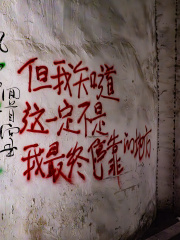 但我知道
这一定不是
我最终停靠的地方